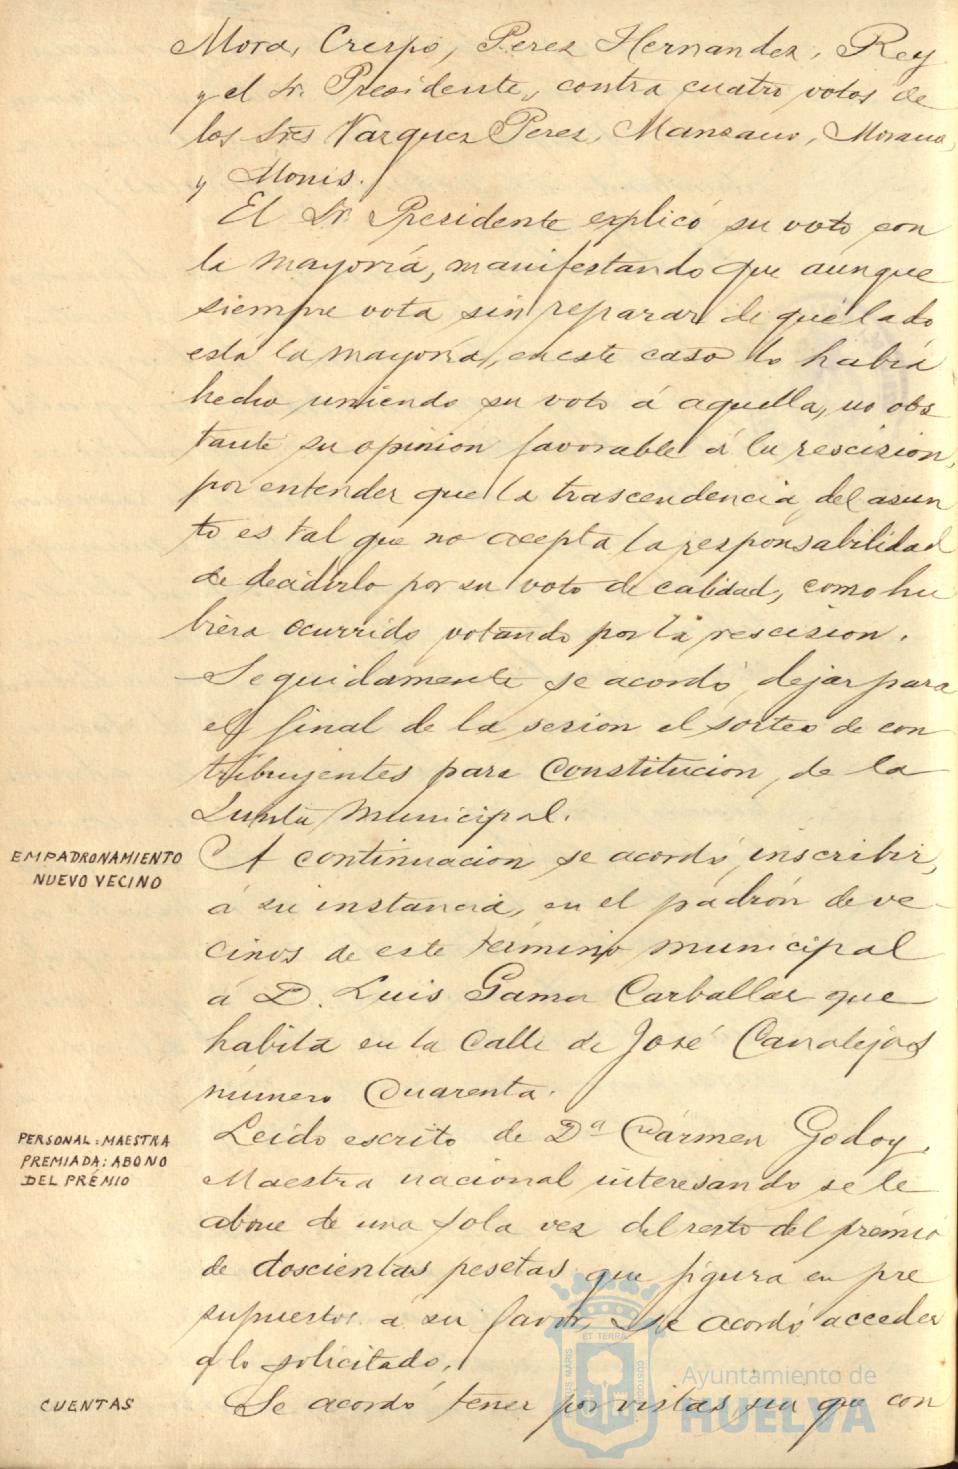 Mora, Crespo, Perez Hernandez, Rey
y el Sr. Presidente, contra cuatro votos de
los Sres Vazquez Perez, Manzano, Morano,
y Monis.
El Sr. Presidente explicó su voto con
la mayoría, manifestando que aunque
siempre vota sin reparar de qué lado
está la mayoría, en este caso lo había
hecho uniendo su voto á aquella, no obs
tante su opinion favorable á la rescision,
por entender que la trascendencia del asun
to es tal que no acepta la responsabilidad
de decidirlo por su voto de calidad, como hu
biera ocurrido votando por la rescision.
Seguidamente se acordó dejar para
el final de la sesion el sorteo de con
tribuyentes para Constitucion de la
Junta Municipal.
EMPADRONAMIENTO
NUEVO VECINO
A continuacion se acordó inscribir,
á su instancia, en el padrón de ve
cinos de este término municipal
á D. Luis Gama Carballar que
habita en la Calle de José Canalejas
número Cuarenta.
PERSONAL: MAESTRA
PREMIADA: ABONO
DEL PREMIO
Leido escrito de Dª Cármen Godoy,
Maestra nacional interesando se le
abone de una sola vez del resto del prémio
de doscientas pesetas que figura en pre
supuestos á su favor, se acordó acceder
a lo solicitado.
CUENTAS
Se acordó tener por vistas sin que con
Ayuntamiento de
HUELVA
PORTUS MARIS
ET TERRAE
CUSTODIA